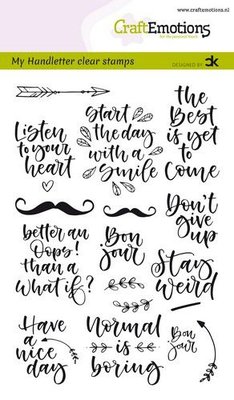 www.craftemotions.nl
CraftEmotions
My Handletter clear stamps
DESIGNED BY
Listen
to your
heart
Start
the day
with a
Smile
the
Best
is yet
to
Come
Don't
give
up
better an
Oops!
than a
what if?
Bon
jour
Stay
weird
Have
a
nice
day
Normal
is
boring
Bon
jour